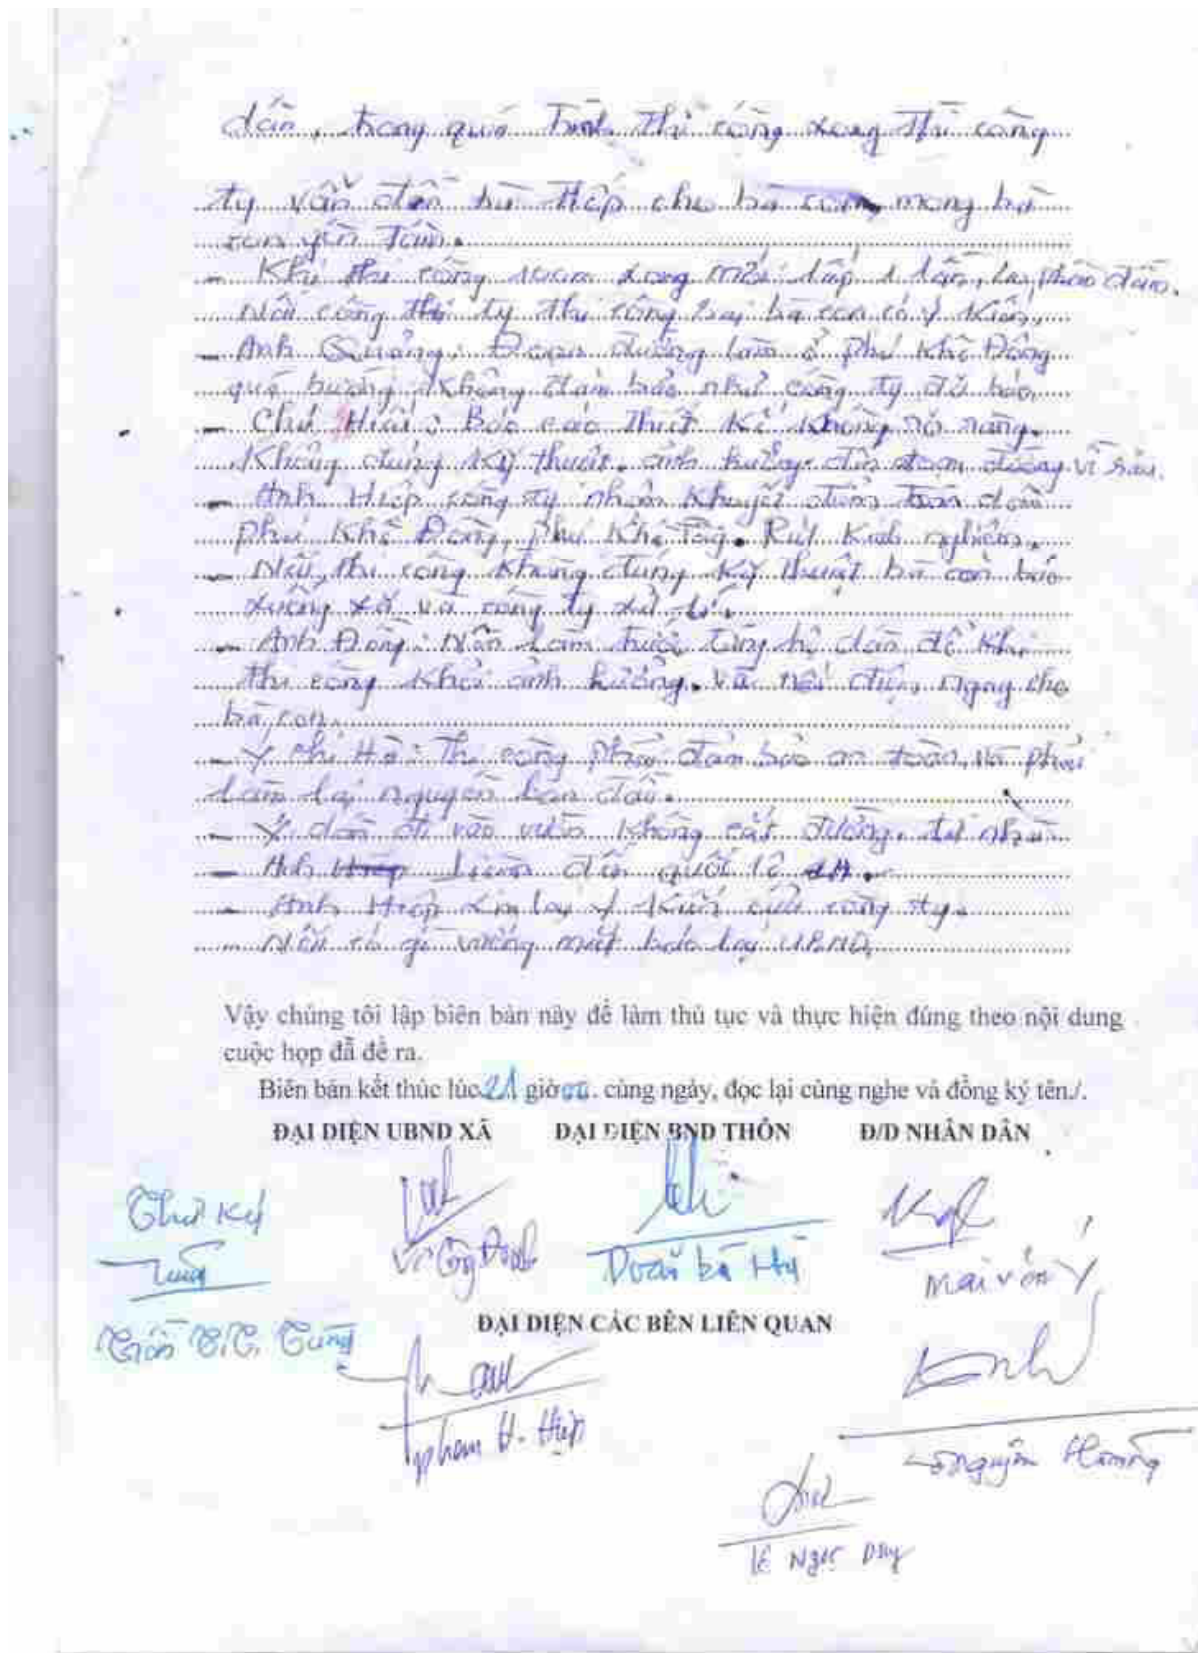 dân, trong quá trình thi công xong thì công
ty vẫn đền bù tiếp cho bà con, mong bà
con yên tâm.
- Khi thi công xong mới lấp 1 lần,
Nếu công ty thi công sai bà con có ý kiến.
- Anh Quảng: Đoạn đường làm ở Phú Khê Đông
quá không đảm bảo như công ty đã báo.
- Chú Hiểu: Báo cáo thiết kế không rõ ràng.
Không đúng kỹ thuật. ảnh hưởng đến đoạn đường về sau.
- Anh Hiệp công ty nhận khuyết điểm
Phú Khê Đông, Phú Khê Tây. Rút kinh nghiệm.
- Nếu thi công không đúng kỹ thuật bà con báo
xuống xã và công ty xử lý.
- Anh Đông: Nên làm trước từng hộ dân để khi
thi công khỏi ảnh hưởng. và ngay cho
bà con.
- Ý chị Hà: Thi công phải đảm bảo an toàn, và phải
làm lại nguyên ban đầu.
- Ý dân đi vào vườn không cắt đường, từ nhà
- Anh đến quốc lộ 1A.
- Anh Hiệp xin lấy ý kiến của công ty.
- Nếu có gì vướng mắt báo lại UBND.
Vậy chúng tôi lập biên bản này để làm thủ tục và thực hiện đúng theo nội dung
cuộc họp đẫ đề ra.
Biên bản kết thúc lúc 21 giờ 00. cùng ngày, đọc lại cùng nghe và đồng ký tên./.
ĐẠI DIỆN UBND XÃ ĐẠI DIỆN BND THÔN Đ/D NHÂN DÂN
Thư ký
Doãn bá Hà
Mai văn Ý
ĐẠI DIỆN CÁC BÊN LIÊN QUAN
Phạm H. Hiệp
Lê Ngọc Duy